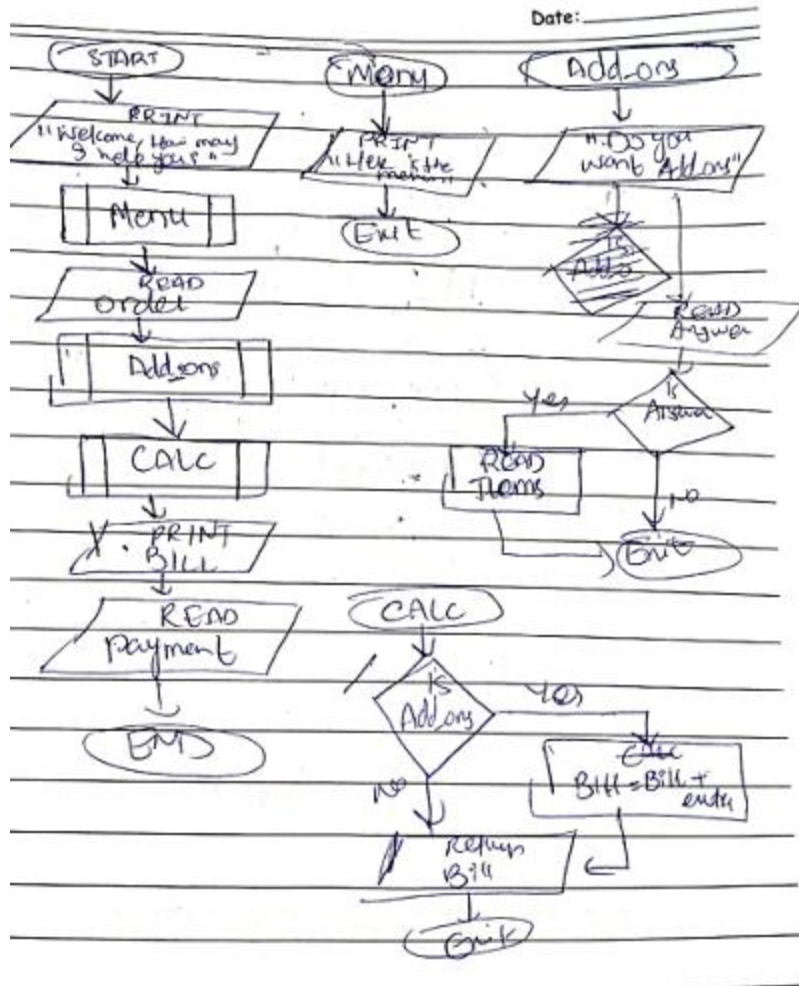 Date:
START
PRINT
"Welcome, How may
I help you"
Menu
READ
order
Add_ons
CALC
PRINT
BILL
READ
payment
END
Menu
PRINT
is the
Exit
Add_ons
"Do you
want Add ons"
is
READ
Answer
is
Answer
Yes
READ
Items
No
Exit
CALC
is
Add_ons
Yes
Bill = Bill +
No
Bill
Exit